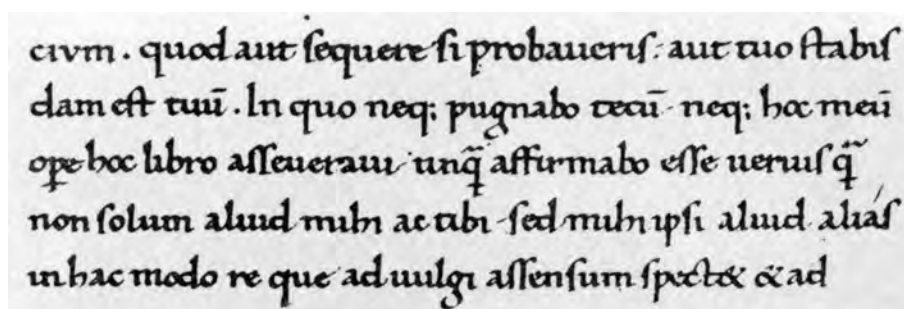 cium . quod aut sequere si probaueris : aut tuo stabis
dam est tuũ . In quo neq; pugnabo tecũ · neq; hoc meũ
ope hoc libro asseueraui · unq̃ affirmabo esse uerius q̃
non solum aliud mihi ac tibi · sed mihi ipsi aliud aliás
in hac modo re que ad uulgi assensum spectet & ad